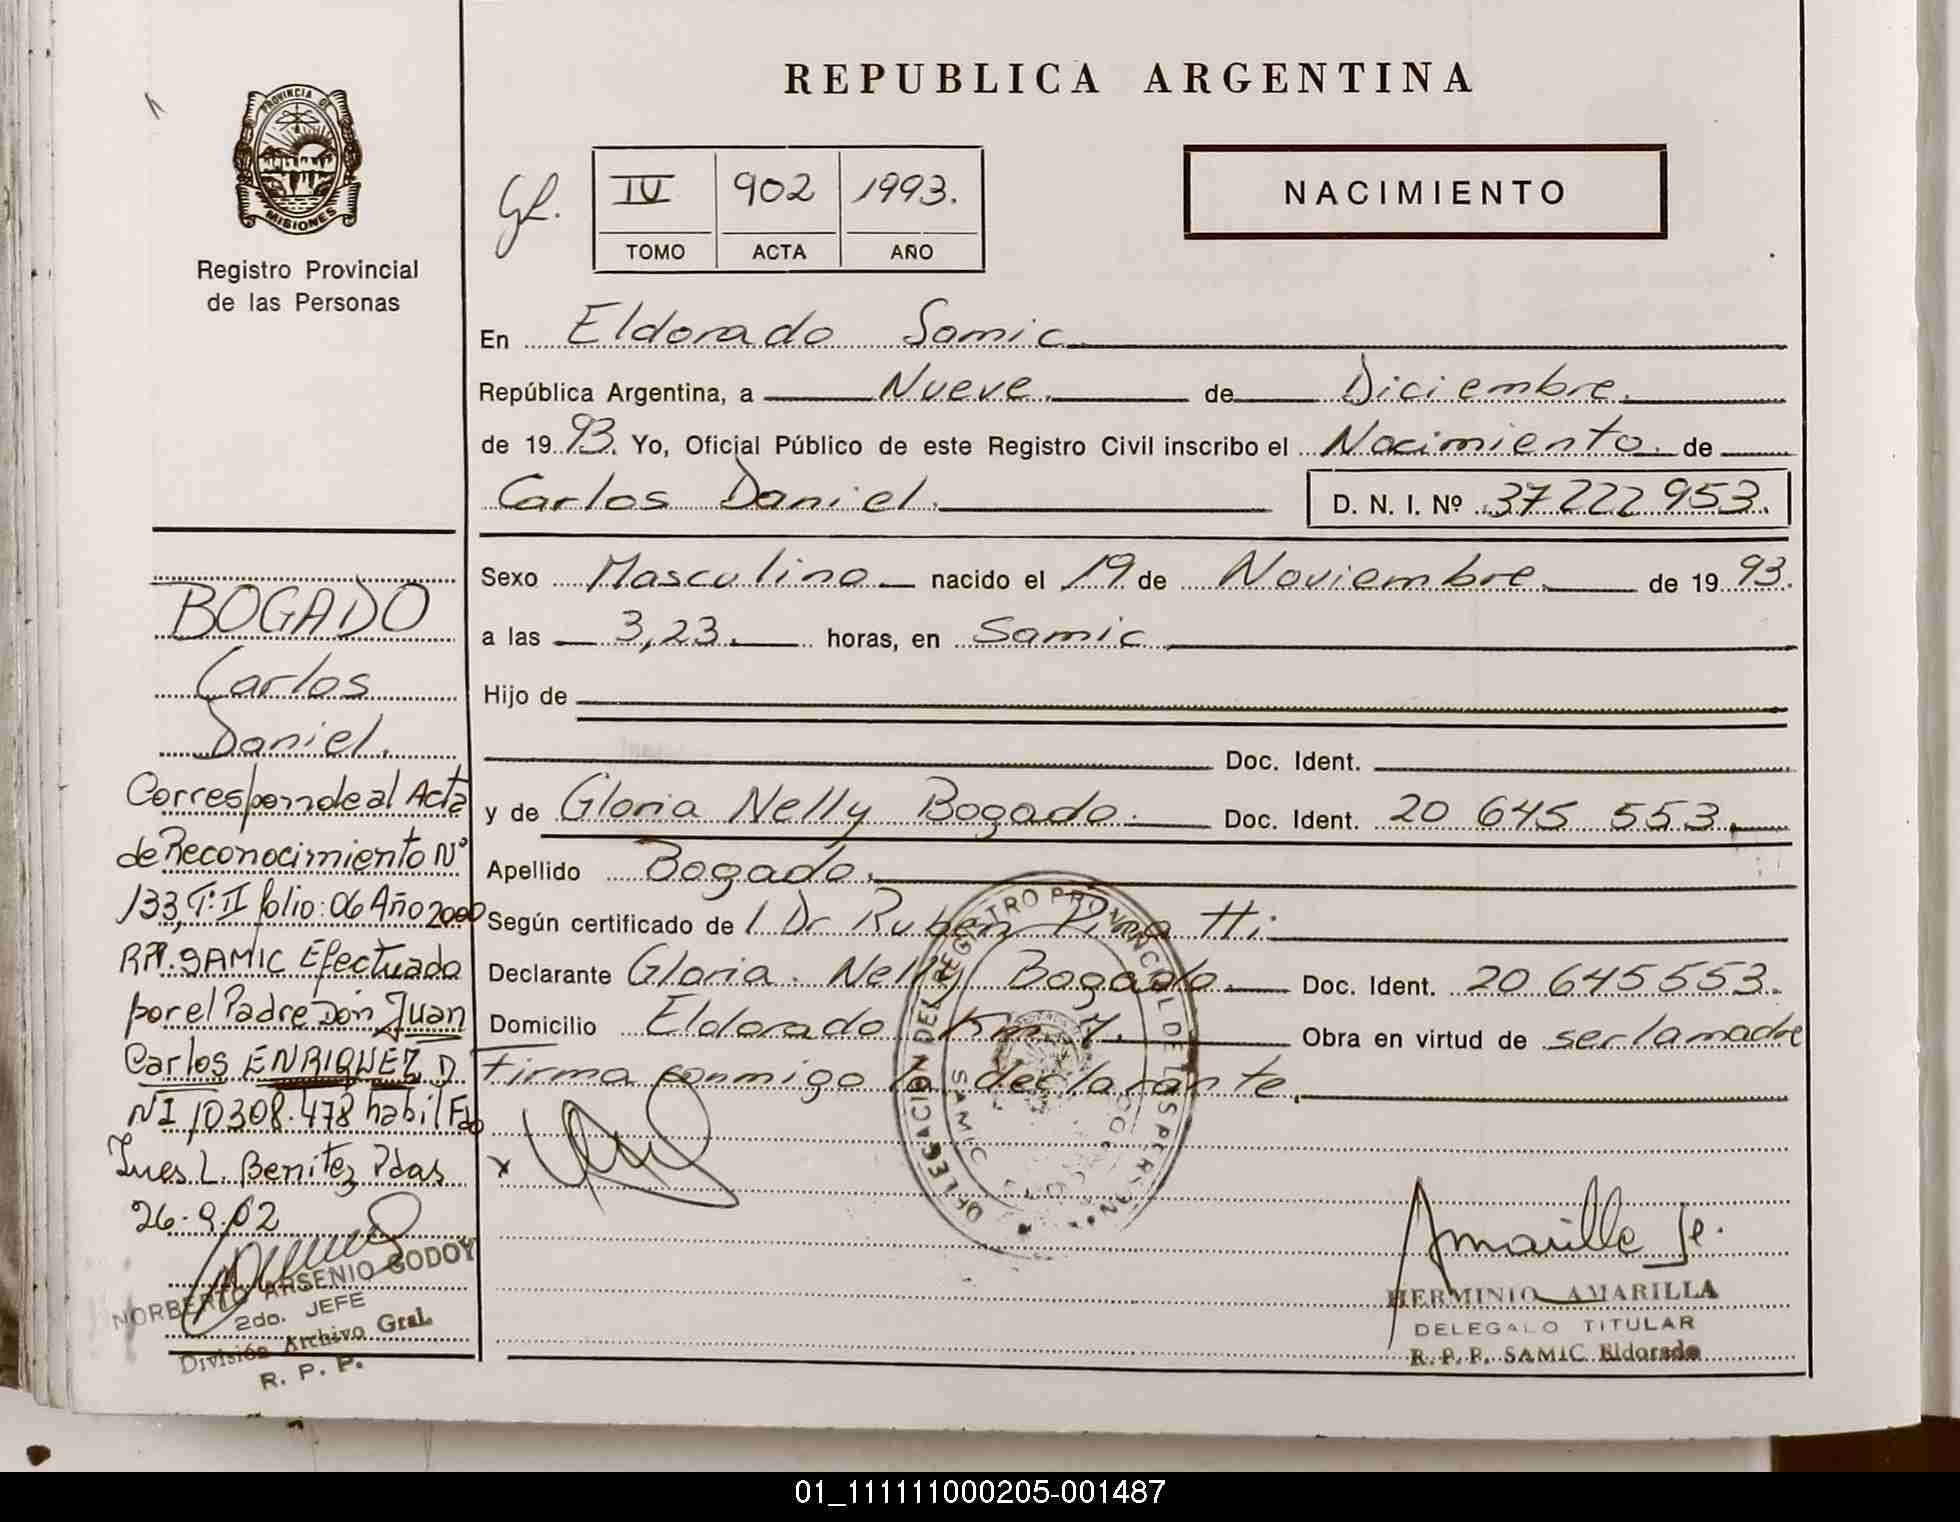 REPUBLICA ARGENTINA
PROVINCIA DE
MISIONES
Registro Provincial
de las Personas
IV 902 1993.
TOMO ACTA AÑO
NACIMIENTO
En Eldorado Samic
República Argentina, a Nueve. de Diciembre.
de 1993. Yo, Oficial Público de este Registro Civil inscribo el Nacimiento. de
Carlos Daniel. D. N. I. Nº 37 222 953.
Sexo Masculino nacido el 19 de Noviembre. de 1993.
a las 3,23. horas, en Samic
Hijo de
Doc. Ident.
y de Gloria Nelly Bogado. Doc. Ident. 20 645 553.
Apellido Bogado.
Según certificado de Dr Ruben
Declarante Gloria. Nelly Bogado. Doc. Ident. 20 645553.
Domicilio Eldorado Km 7. Obra en virtud de ser la madre
Firma conmigo la declarante.
x
BOGADO
Carlos
Daniel.
Corresponde al Acta
de Reconocimiento Nº
133, T: II folio: 06 Año 2000
RP. SAMIC Efectuada
por el Padre Don Juan
Carlos ENRIQUEZ D
NI 10308.478 habil Fdo
Ines L. Benitez Pdas
26.9.02
NORBERTO ARSENIO GODOY
2do. JEFE
División Archivo Gral.
R. P. P.
DELEGACION DEL REGISTRO PROVINCIAL DE LAS PERSONAS
SAMIC
Amarilla
HERMINIO AMARILLA
DELEGADO TITULAR
R. P. P. SAMIC Eldorado
01_111111000205-001487